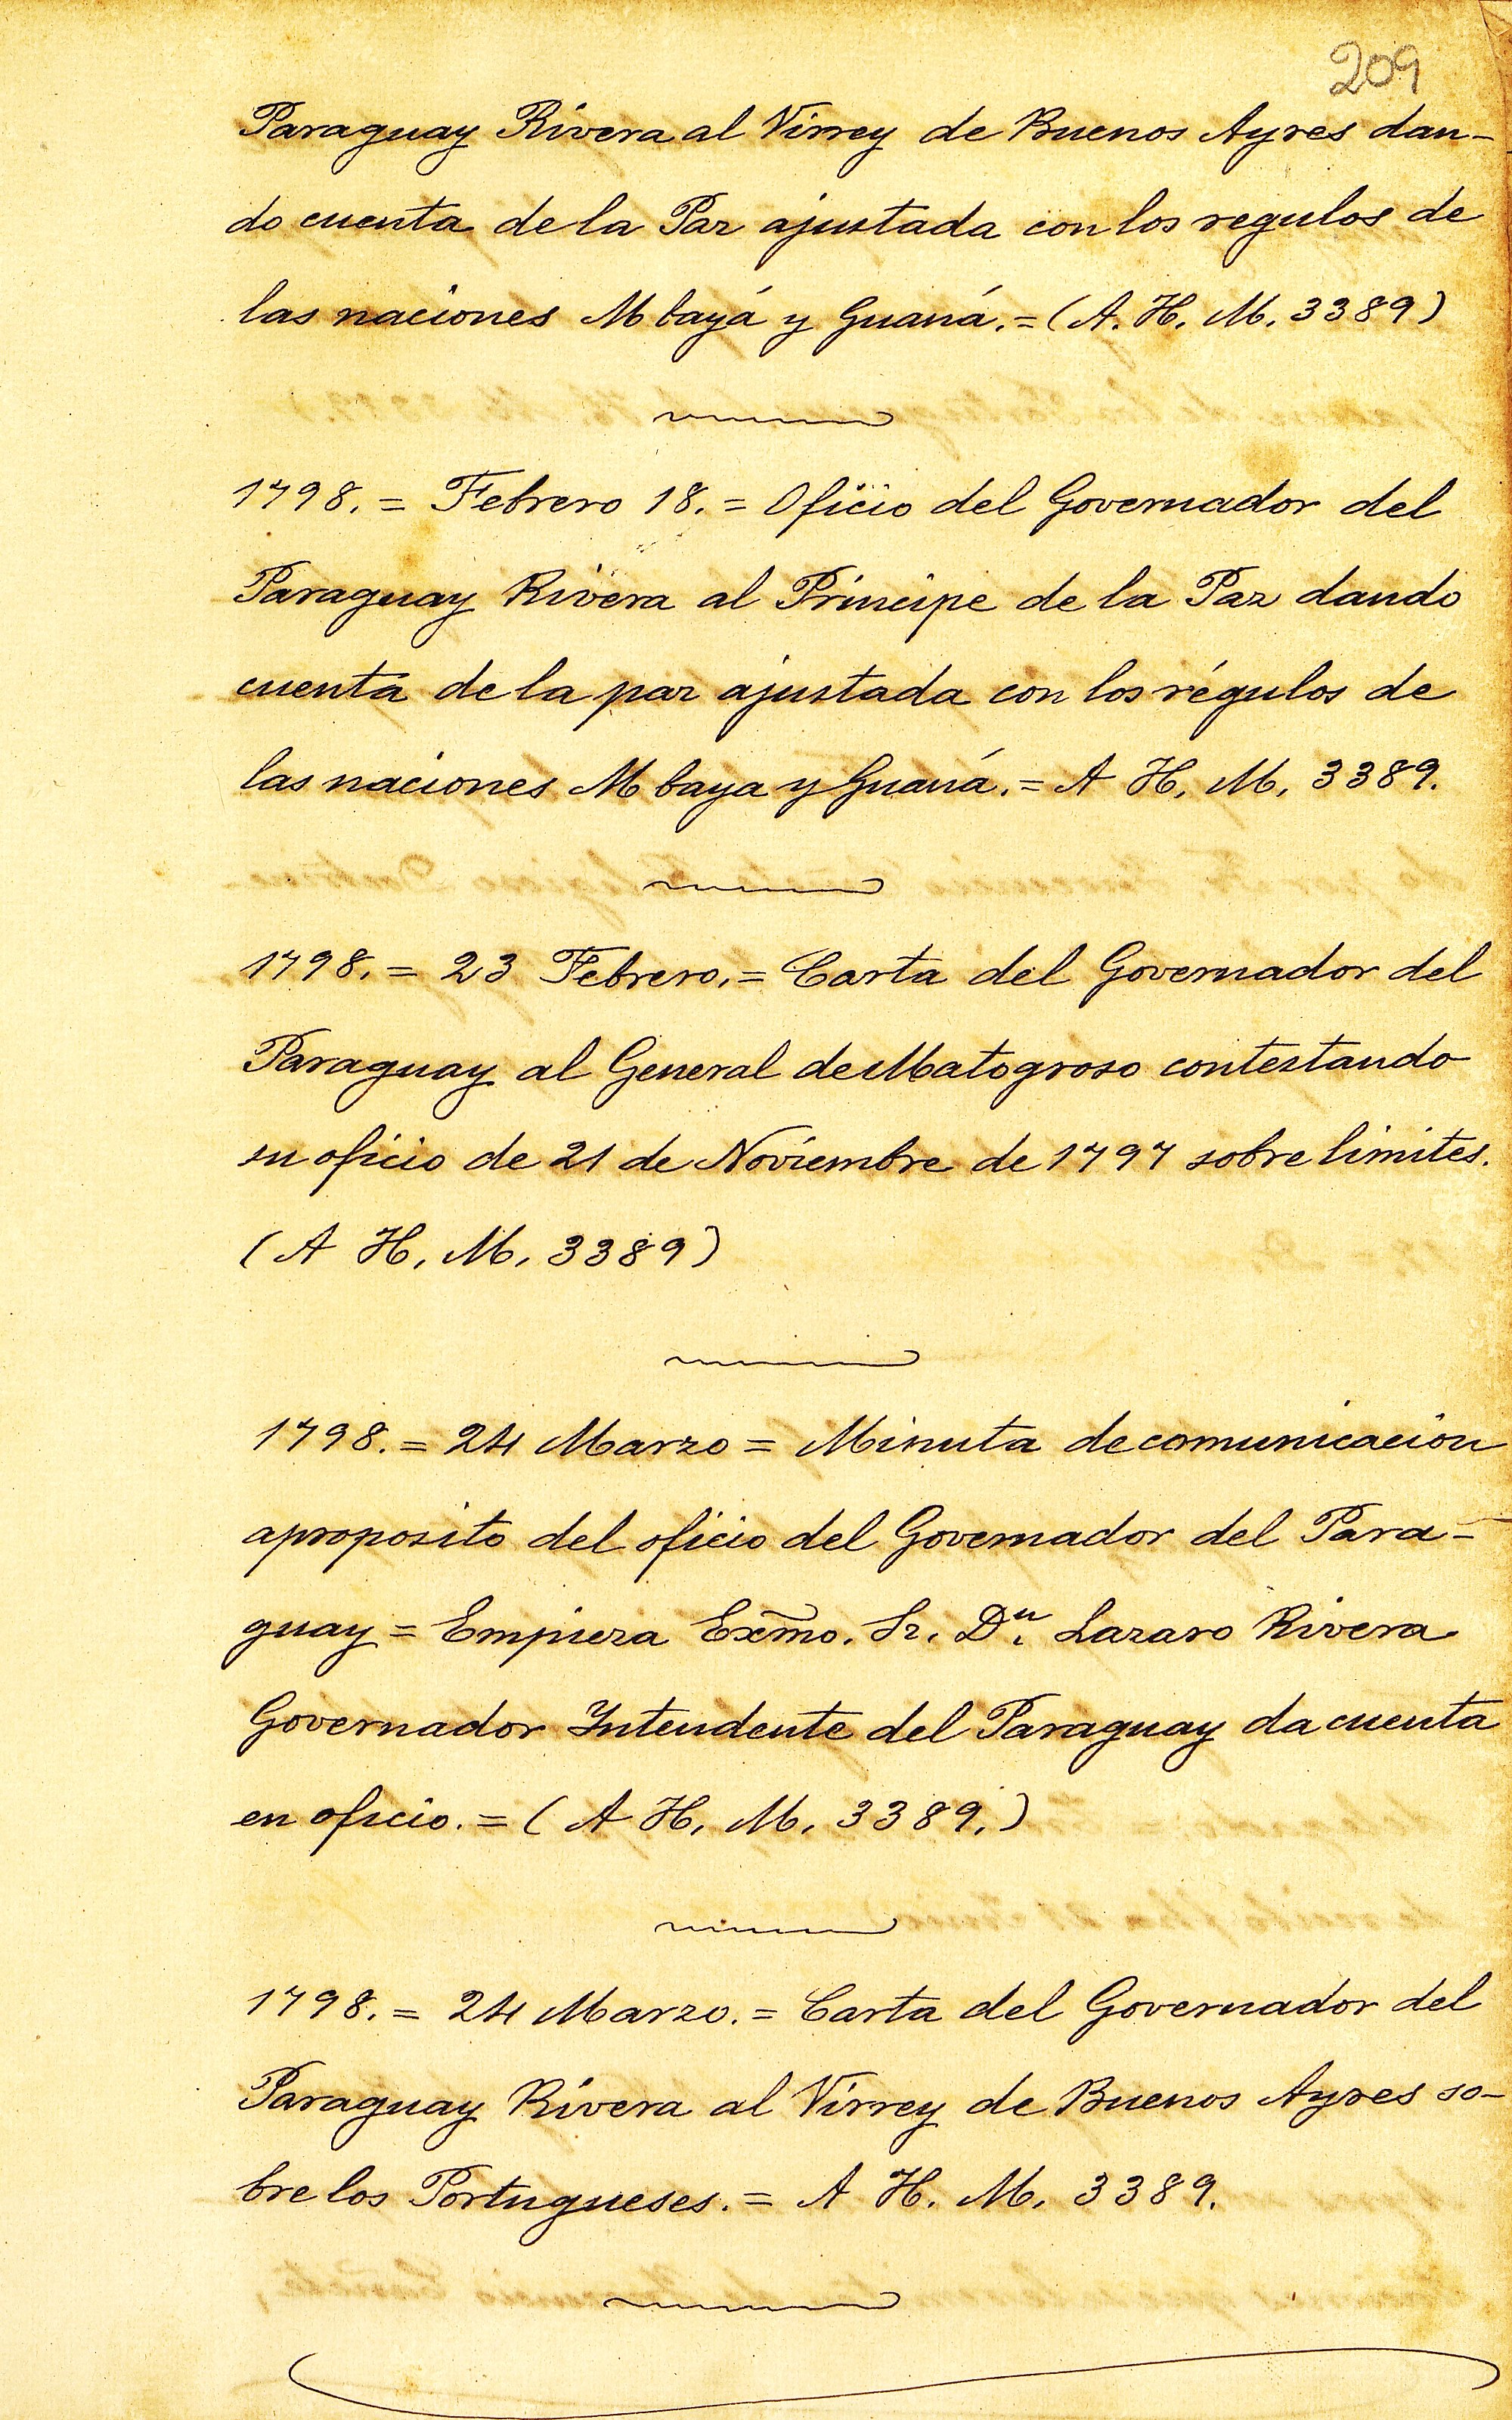 209
Paraguay Rivera al Virrey de Buenos Ayres dan-
do cuenta de la Paz ajustada con los regulos de
las naciones Mbayá y Guaná.=(A. H. M. 3389)
1798.= Febrero 18.= Oficio del Governador del
Paraguay Rivera al Principe de la Paz dando
cuenta de la paz ajustada con los régulos de
las naciones Mbaya y Guaná.= A H. M. 3389.
1798.= 23 Febrero.= Carta del Governador del
Paraguay al General de Matogroso contestando
su oficio de 21 de Noviembre de 1797 sobre limites.
(A H. M. 3389)
1798.= 24 Marzo = Minuta de comunicacion
aproposito del oficio del Governador del Para-
guay = Empieza Exmo. Sr. Dn. Lazaro Rivera
Governador Intendente del Paraguay da cuenta
en oficio.= (A H. M. 3389.)
1798.= 24 Marzo.= Carta del Governador del
Paraguay Rivera al Virrey de Buenos Ayres so-
bre los Portugueses.= A H. M. 3389.